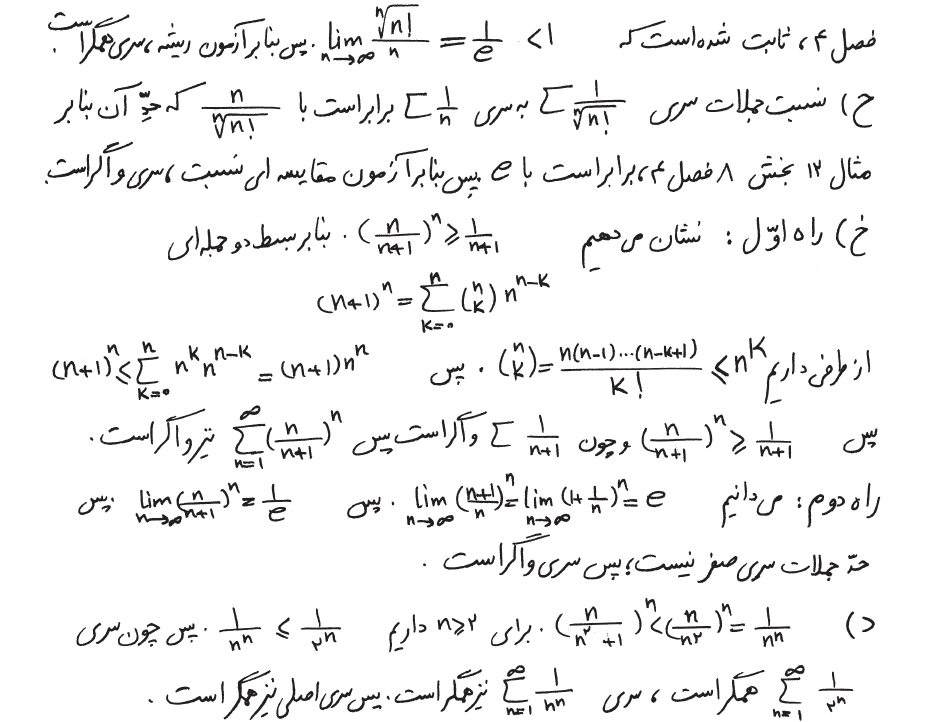 فصل ۴، ثابت شده است که $\lim_{n\to\infty} \frac{\sqrt[n]{n!}}{n} = \frac{1}{e} < 1$. پس بنابر آزمون ریشه، سری همگراست.
ح) نسبت جملات سری $\sum \frac{1}{\sqrt[n]{n!}}$ به سری $\sum \frac{1}{n}$ برابر است با $\frac{n}{\sqrt[n]{n!}}$ که حدّ آن بنابر
مثال ۱۲ بخش ۸ فصل ۴، برابر است با e. پس بنابر آزمون مقایسه ای نسبت، سری واگراست.
خ) راه اوّل: نشان می دهیم $(\frac{n}{n+1})^n \geq \frac{1}{n+1}$. بنابر بسط دو جمله ای
$(n+1)^n = \sum_{k=0}^{n} \binom{n}{k} n^{n-k}$
از طرفی داریم $\binom{n}{k} = \frac{n(n-1)\cdots(n-k+1)}{k!} \leq n^k$. پس $(n+1)^n \leq \sum_{k=0}^{n} n^k n^{n-k} = (n+1)n^n$
پس $(\frac{n}{n+1})^n \geq \frac{1}{n+1}$ و چون $\sum \frac{1}{n+1}$ واگراست پس $\sum_{n=1}^{\infty} (\frac{n}{n+1})^n$ نیز واگراست.
راه دوم: می دانیم $\lim_{n\to\infty} (\frac{n+1}{n})^n = \lim_{n\to\infty} (1+\frac{1}{n})^n = e$. پس $\lim_{n\to\infty} (\frac{n}{n+1})^n = \frac{1}{e}$. پس
حدّ جملات سری صفر نیست؛ پس سری واگراست.
د) $(\frac{n}{n^2+1})^n < (\frac{n}{n^2})^n = \frac{1}{n^n}$. برای $n \geq 2$ داریم $\frac{1}{n^n} \leq \frac{1}{2^n}$. پس چون سری
$\sum_{n=1}^{\infty} \frac{1}{2^n}$ همگراست، سری $\sum_{n=1}^{\infty} \frac{1}{n^n}$ نیز همگراست. پس سری اصلی نیز همگراست.